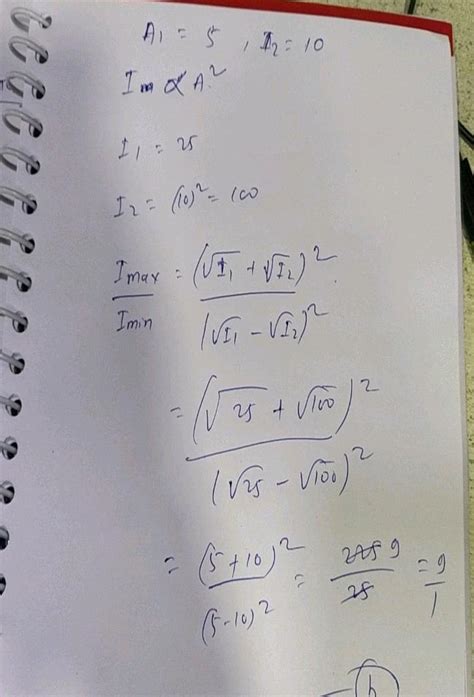 A₁ = 5 , I₂ = 10
Im ∝ A²
I₁ = 25
I₂ = (10)² = 100
Imax / Imin = (√I₁ + √I₂)² / (√I₁ - √I₂)²
= (√25 + √100)² / (√25 - √100)²
= (5+10)² / (5-10)² = 225 9 / 25 = 9 / 1
(b)